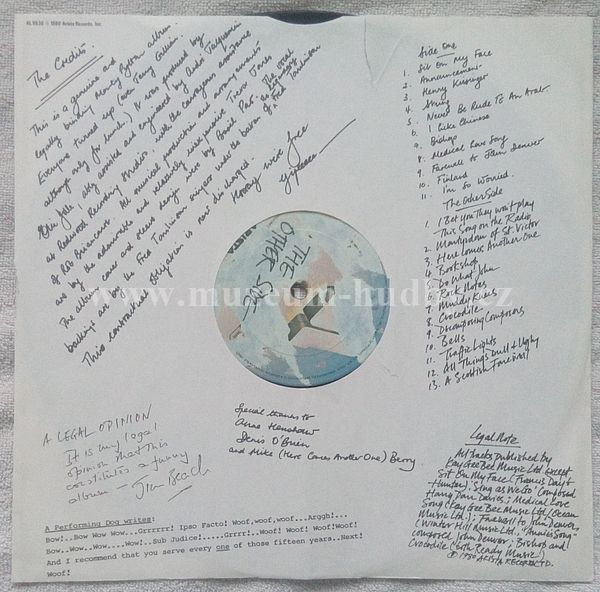 AL 9536 © 1980 Arista Records, Inc.
The Credits.
This is a genuine and
legally binding Monty Python album.
Everyone turned up (even Terry Gilliam
although only for lunch.) It was produced by
Eric Idle, ably assisted and engineered by Andre Jacquemin
at Redwood Recording Studios, with the courageous assistance
are by the admirable and relatively inexpensive Trevor Jones
The album cover and sleeve design were by Basil Pao. The vocal
backings are by the Fred Tomlinson singers under the baton of Fred Tomlinson
This contractual obligation is now discharged.
Hooray we're free
Side One
1. Sit On My Face
2. Announcement
3. Henry Kissinger
4. String
5. Never Be Rude To An Arab
6. I Like Chinese
7. Bishop
8. Medical Love Song
9. Farewell to John Denver
10. Finland
11. I'm So Worried.
The Other Side
1. I Bet You They Won't Play
This Song on the Radio
2. Martyrdom of St. Victor
3. Here Comes Another One
4. Bookshop
5. Do What John
6. Rock Notes
7. Muddy Knees
8. Crocodile
9. Decomposing Composers
10. Bells
11. Traffic Lights
12. All Things Dull & Ugly
13. A Scottish Farewell
THE
OTHER SIDE
ARISTA
www.museum-hudby.cz
A LEGAL OPINION
It is my legal
opinion that this
constitutes a funny
album - Jim Beach
Special thanks to
Anne Henshaw
Denis O'Brien
and Mike (Here Comes Another One) Berry
A Performing Dog writes:
Bow!..Bow Wow Wow...Grrrrrr! Ipso Facto! Woof,woof,woof...Arggh!...
Bow..Wow..Wow....Wow!..Sub Judice!.....Grrrr!..Woof! Woof! Woof!Woof!
And I recommend that you serve every one of those fifteen years..Next!
Woof!
Legal Note
All tracks published by
Kay Gee Bee Music Ltd except
Sit On My Face (Francis Day &
Hunter); 'Sing as We Go' composed
Harry Parr Davies; Medical Love
Song (Kay Gee Bee Music Ltd/Ocean
Music Ltd.); Farewell to John Denver
(Winter Hill Music Ltd.) "Annie's Song"
composed John Denver; Bishop and
Crocodile (Both Ready Music)
℗ 1980 ARISTA RECORDS LTD.